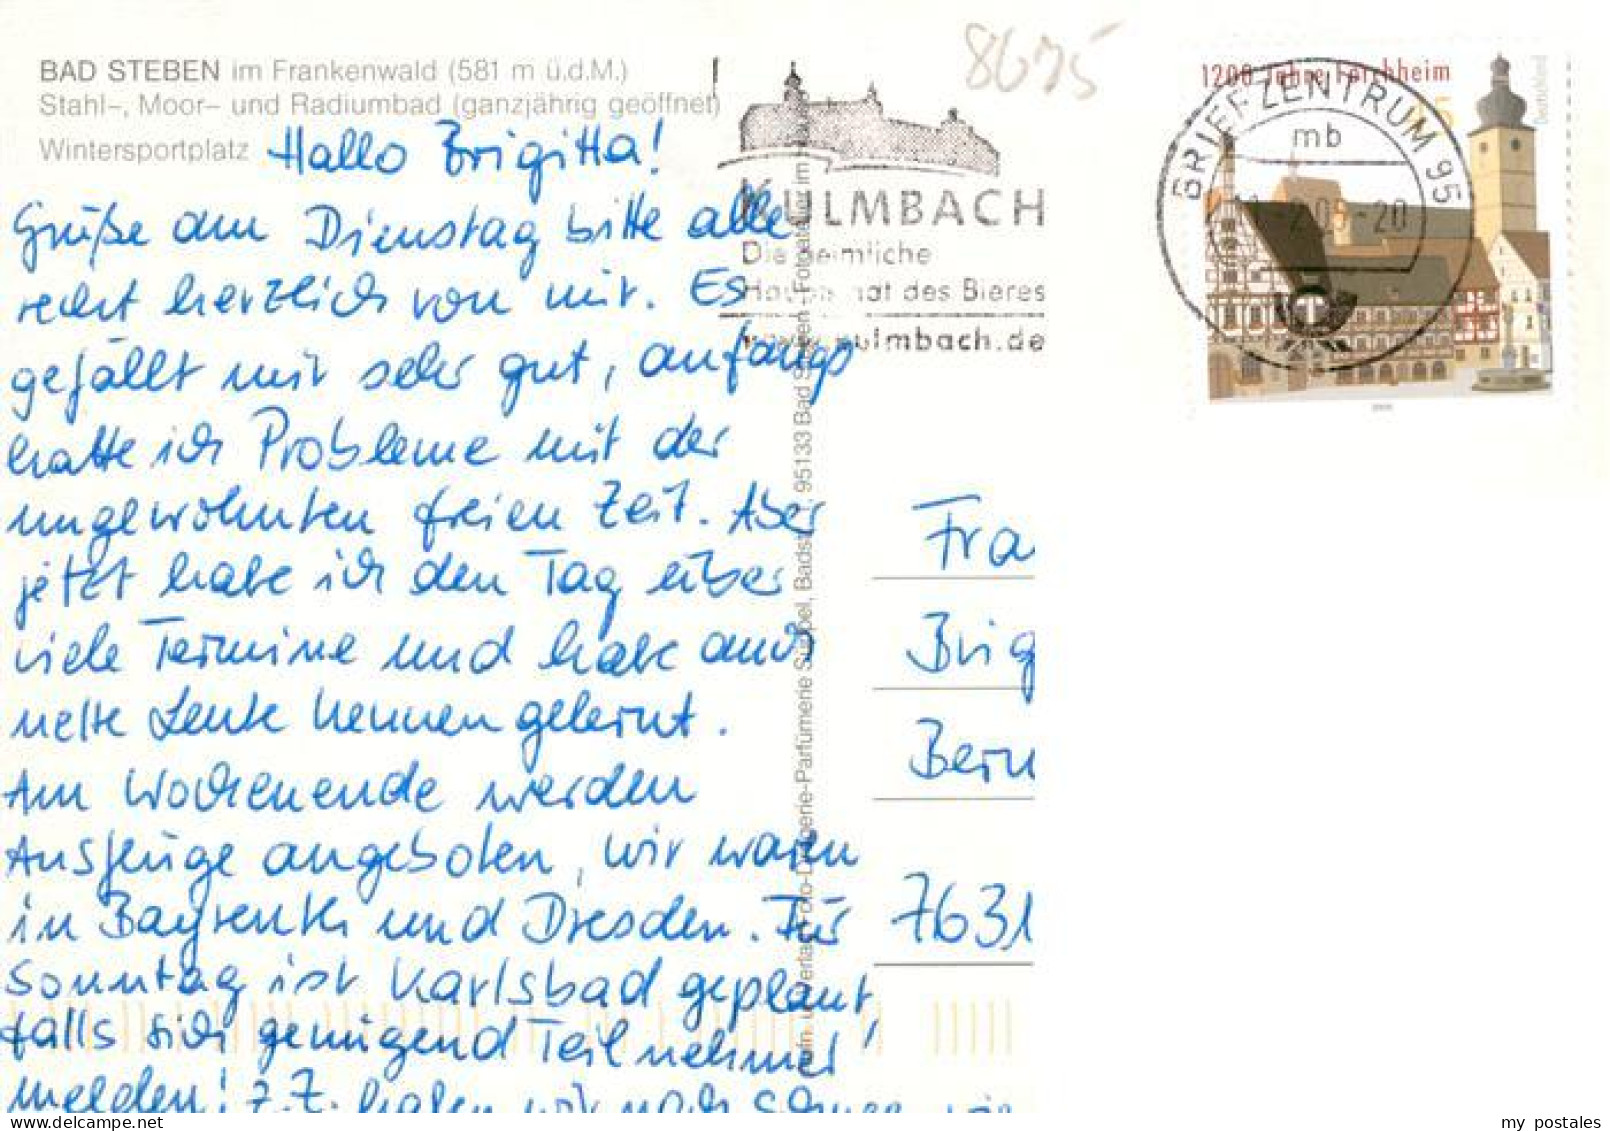 8675
BAD STEBEN im Frankenwald (581 m ü.d.M.)
Stahl-, Moor- und Radiumbad (ganzjährig geöffnet)
Wintersportplatz
Hallo Brigitta!
Grüße am Dienstag bitte alle
recht herzlich von mir. Es
gefällt mir sehr gut, anfangs
hatte ich Probleme mit der
ungewohnten freien Zeit. Aber
jetzt habe ich den Tag über
viele Termine und habe auch
nette Leute kennen gelernt.
Am Wochenende werden
Ausflüge angeboten, wir waren
in Bayreuth und Dresden. Für
Sonntag ist Karlsbad geplant,
falls sich genügend Teilnehmer
melden! z.Z. haben wir noch
KULMBACH
Die heimliche
Hauptstadt des Bieres
www.kulmbach.de
1200 Jahre Forchheim
Deutschland
BRIEFZENTRUM 95
mb
-20
95133 Bad Steben
Fra
Brig
Bern
7631
my postales